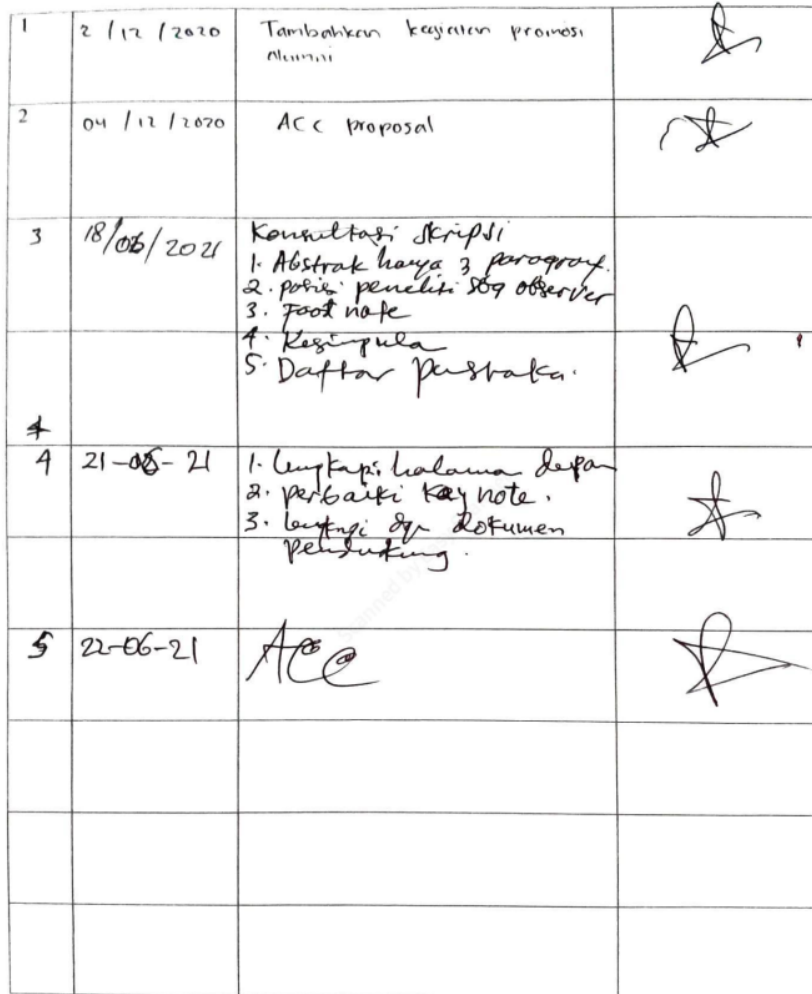 1 2/12/2020 Tambahkan kegiatan promosi
alumni
2 04/12/2020 ACC proposal
3 18/06/2021 Konsultasi skripsi
1. Abstrak hanya 3 paragraf.
2. posisi peneliti sbg observer
3. Foot note
4. Kesimpula
5. Daftar pustaka.
4
4 21-06-21 1. lengkapi halama depan
2. perbaiki key note.
3. dokumen
pendukung.
5 22-06-21 ACC
Scanned by